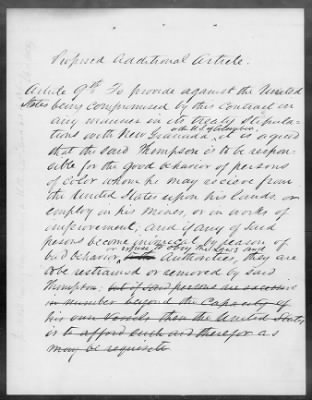 Proposed Additional Article.
Article 9th. To provide against the United
States being compromised by this contract in
any manner in its treaty stipula-
tions with New Granada, or the U.S. of Columbia, it is agreed
that the said Thompson is to be respon-
sible for the good behavior of persons
of Color whom he may receive from
the United States upon his lands, or
employ in his mines, or in works of
improvement; and if any of said
persons become inimical by reason of
bad behavior, or refuse to obey the laws and Authorities, they are
to be restrained or removed by said
Thompson; but if said persons are
in number beyond the Capacity of
his own vessels then the United States
is to afford such aid therefor as
may be requisite